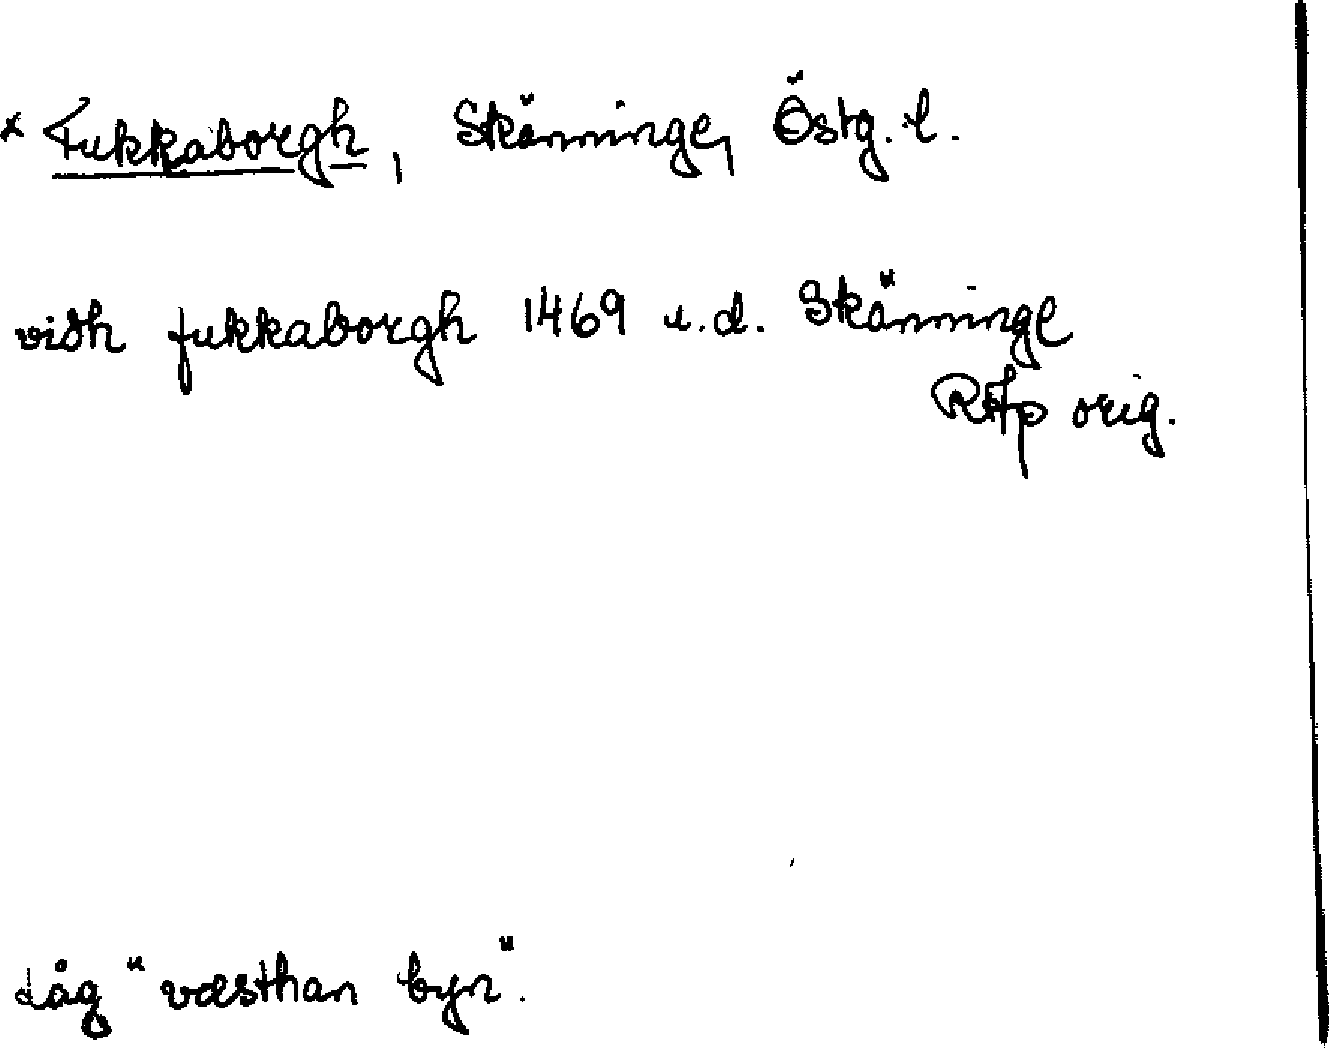 * Fukkaborgh, Skänninge, Östg. l.
vidh fukkaborgh 1469 u.d. Skänninge
RAp orig.
Låg "væsthan byn".